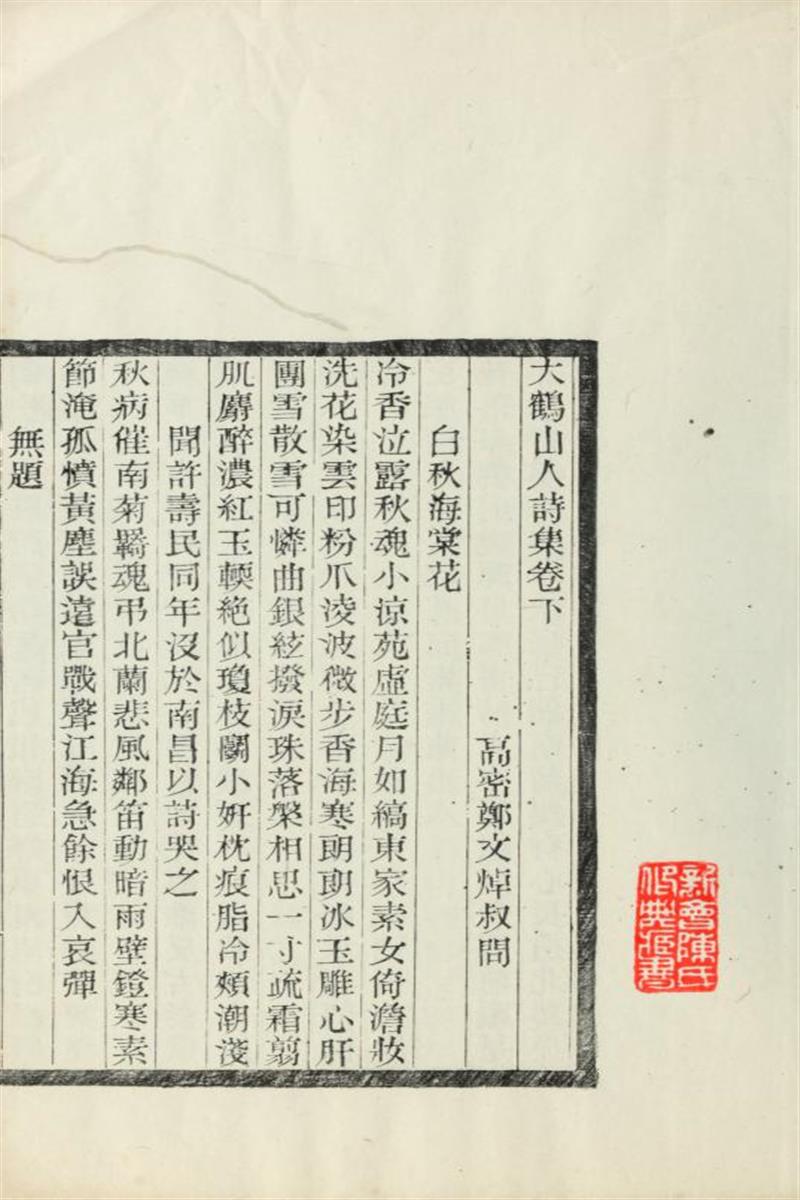 大鶴山人詩集卷下
高密鄭文焯叔問
白秋海棠花
冷香泣露秋魂小涼苑虛庭月如縞東家素女倚澹妝
洗花染雲印粉爪淩波微步香海寒朗朗冰玉雕心肝
團雪散雪可憐曲銀絃撥淚珠落槃相思一寸疏霜翦
肌麝醉濃紅玉輭絶似瓊枝鬭小妍枕痕脂冷頰潮淺
聞許壽民同年沒於南昌以詩哭之
秋病催南菊羇魂弔北蘭悲風鄰笛動暗雨壁鐙寒素
節淹孤憤黃塵誤遠官戰聲江海急餘恨入哀彈
無題
新會陳氏
書